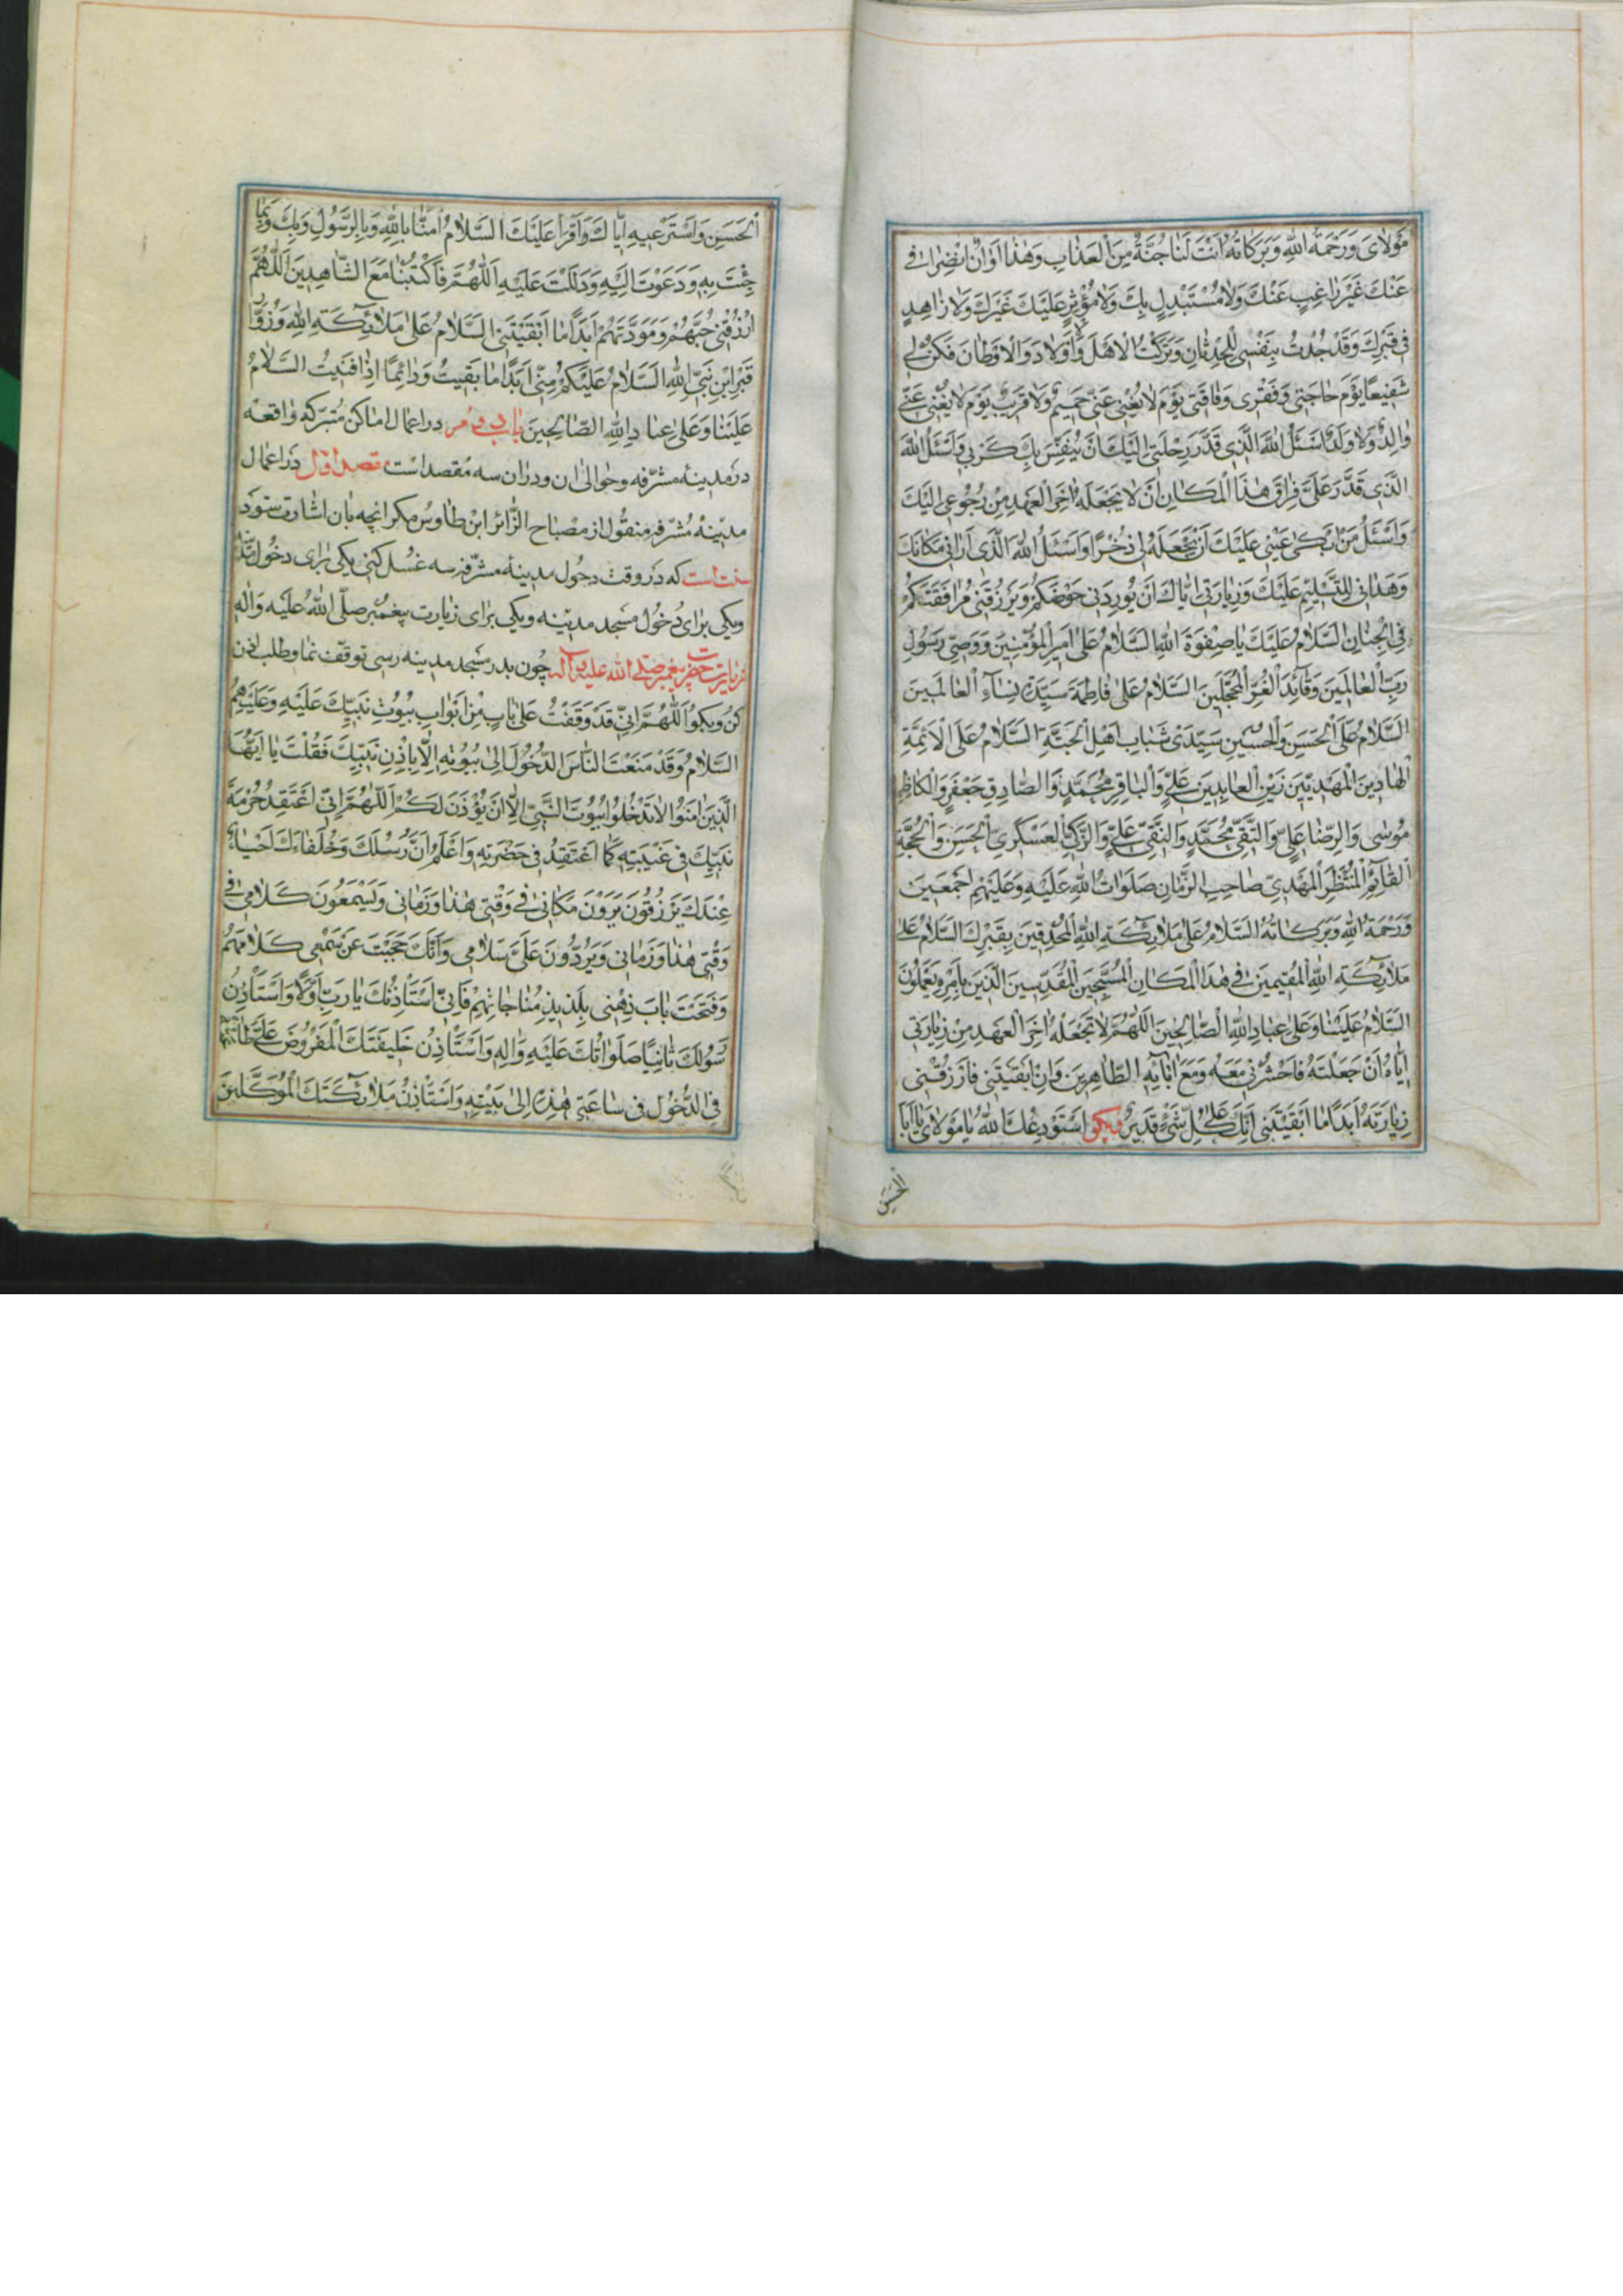 مَوْلايَ وَرَحْمَةُ اللهِ وَبَرَكاتُهُ اَنْتَ لَنا جُنَّةٌ مِنَ الْعَذابِ وَهٰذا اَوانُ انْصِرافي
عَنْكَ غَيْرَ راغِبٍ عَنْكَ وَلا مُسْتَبْدِلٍ بِكَ وَلا مُؤْثِرٍ عَلَيْكَ غَيْرَكَ وَلا زاهِدٍ
في قَبْرِكَ وَقَدْ جُدْتُ بِنَفْسي لِلْحِدْثانِ وَتَرَكْتُ الْاَهْلَ وَالْاَوْلادَ وَالْاَوْطانَ فَكُنْ لي
شَفيعًا يَوْمَ حاجَتي وَفَقْري وَفاقَتي يَوْمَ لا يُغْني عَنّي حَميمٌ وَلا قَريبٌ يَوْمَ لا يُغْني عَنّي
والِدٌ وَلا وَلَدٌ اَسْئَلُ اللهَ الَّذي قَدَّرَ رِحْلَتي اِلَيْكَ اَنْ يُنَفِّسَ بِكَ كَرْبي وَاَسْئَلُ اللهَ
الَّذي قَدَّرَ عَلَيَّ فِراقَ هٰذَا الْمَكانِ اَنْ لا يَجْعَلَهُ اٰخِرَ الْعَهْدِ مِنْ رُجُوعي اِلَيْكَ
وَاَسْئَلُ مَنْ اَبْكى عَيْني عَلَيْكَ اَنْ يَجْعَلَهُ لي ذُخْرًا وَاَسْئَلُ اللهَ الَّذي اَراني مَكانَكَ
وَهَداني لِلتَّسْليمِ عَلَيْكَ وَزِيارَتي اِيّاكَ اَنْ يُورِدَني حَوْضَكُمْ وَيَرْزُقَني مُرافَقَتَكُمْ
فِي الْجِنانِ السَّلامُ عَلَيْكَ يا صِفْوَةَ اللهِ السَّلامُ عَلى اَميرِ الْمُؤْمِنينَ وَوَصِيِّ رَسُولِ
رَبِّ الْعالَمينَ وَقائِدِ الْغُرِّ الْمُحَجَّلينَ السَّلامُ عَلى فاطِمَةَ سَيِّدَةِ نِساءِ الْعالَمينَ
السَّلامُ عَلَى الْحَسَنِ وَالْحُسَيْنِ سَيِّدَيْ شَبابِ اَهْلِ الْجَنَّةِ السَّلامُ عَلَى الْاَئِمَّةِ
الْهادِينَ الْمَهْدِيّينَ زَيْنِ الْعابِدينَ عَلِيٍّ وَالْباقِرِ مُحَمَّدٍ وَالصّادِقِ جَعْفَرٍ وَالْكاظِمِ
مُوسى وَالرِّضا عَلِيٍّ وَالتَّقِيِّ مُحَمَّدٍ وَالنَّقِيِّ عَلِيٍّ وَالزَّكِيِّ الْعَسْكَرِيِّ الْحَسَنِ وَالْحُجَّةِ
الْقائِمِ الْمُنْتَظَرِ الْمَهْدِيِّ صاحِبِ الزَّمانِ صَلَواتُ اللهِ عَلَيْهِ وَعَلَيْهِمْ اَجْمَعينَ
وَرَحْمَةُ اللهِ وَبَرَكاتُهُ السَّلامُ عَلى مَلائِكَةِ اللهِ الْمُحْدِقينَ بِقَبْرِكَ السَّلامُ عَلى
مَلائِكَةِ اللهِ الْمُقيمينَ في هٰذَا الْمَكانِ الْمُسَبِّحينَ الْمُقَدِّسينَ الَّذينَ بِاَمْرِهِ يَعْمَلُونَ
السَّلامُ عَلَيْنا وَعَلى عِبادِ اللهِ الصّالِحينَ اَللّٰهُمَّ لا تَجْعَلْهُ اٰخِرَ الْعَهْدِ مِنْ زِيارَتي
اِيّاهُ اَنْ جَعَلْتَهُ فَاحْشُرْني مَعَهُ وَمَعَ اٰبائِهِ الطّاهِرينَ وَاِنْ اَبْقَيْتَني فَارْزُقْني
زِيارَتَهُ اَبَدًا ما اَبْقَيْتَني اِنَّكَ عَلى كُلِّ شَيْءٍ قَديرٌ وبگو اَسْتَوْدِعُكَ اللهَ يا مَوْلايَ يا اَبَا
الْحَسَنِ
الْحَسَنِ وَاَسْتَرْعيهِ اِيّاكَ وَاَقْرَأُ عَلَيْكَ السَّلامُ اٰمَنّا بِاللهِ وَبِالرَّسُولِ وَبِكَ وَبِما
جِئْتَ بِهِ وَدَعَوْتَ اِلَيْهِ وَدَلَلْتَ عَلَيْهِ اَللّٰهُمَّ فَاكْتُبْنا مَعَ الشّاهِدينَ اَللّٰهُمَّ
ارْزُقْني حُبَّهُمْ وَمَوَدَّتَهُمْ اَبَدًا ما اَبْقَيْتَني السَّلامُ عَلى مَلائِكَةِ اللهِ وَزُوّارِ
قَبْرِ ابْنِ نَبِيِّ اللهِ السَّلامُ عَلَيْكُمْ مِنّي اَبَدًا ما بَقيتُ وَدائِمًا اِذا فَنيتُ السَّلامُ
عَلَيْنا وَعَلى عِبادِ اللهِ الصّالِحينَ باب دویم در اعمال اماکن متبرکه واقعه
در مدینه مشرفه وحوالی ان ودران سه مقصد است مقصد اول در اعمال
مدینه مشرفه منقول از مصباح الزائر ابن طاوس مگر انچه بان اشارت شود
سنت است که در وقت دخول مدینه مشرفه سه غسل کنی یکی برای دخول
ویکی برای دخول مسجد مدینه ویکی برای زیارت پیغمبر صلّی الله علیه واله
زیارت حضرت پیغمبر صلی الله علیه واله چون بدر مسجد مدینه رسی توقف نما وطلب اذن
کن وبگو اَللّٰهُمَّ اِنّي قَدْ وَقَفْتُ عَلى بابٍ مِنْ اَبْوابِ بُيُوتِ نَبِيِّكَ عَلَيْهِ وَعَلَيْهِمُ
السَّلامُ وَقَدْ مَنَعْتَ النّاسَ الدُّخُولَ اِلى بُيُوتِهِ اِلّا بِاِذْنِ نَبِيِّكَ فَقُلْتَ يا اَيُّهَا
الَّذينَ اٰمَنُوا لا تَدْخُلُوا بُيُوتَ النَّبِيِّ اِلّا اَنْ يُؤْذَنَ لَكُمْ اَللّٰهُمَّ اِنّي اَعْتَقِدُ حُرْمَةَ
نَبِيِّكَ في غَيْبَتِهِ كَما اَعْتَقِدُ في حَضْرَتِهِ وَاَعْلَمُ اَنَّ رُسُلَكَ وَخُلَفاءَكَ اَحْياءٌ
عِنْدَكَ يُرْزَقُونَ يَرَوْنَ مَكاني في وَقْتي هٰذا وَزَماني وَيَسْمَعُونَ كَلامي في
وَقْتي هٰذا وَزَماني وَيَرُدُّونَ عَلَيَّ سَلامي وَاَنَّكَ حَجَبْتَ عَنْ سَمْعي كَلامَهُمْ
وَفَتَحْتَ بابَ ذِهْني بِلَذيذِ مُناجاتِهِمْ فَاِنّي اَسْتَأْذِنُكَ يا رَبِّ اَوَّلًا وَاَسْتَأْذِنُ
رَسُولَكَ ثانِيًا صَلَواتُكَ عَلَيْهِ وَاٰلِهِ وَاَسْتَأْذِنُ خَليفَتَكَ الْمَفْرُوضَ عَلَيَّ طاعَتُهُ
فِي الدُّخُولِ في ساعَتي هٰذِهِ اِلى بَيْتِهِ وَاَسْتَأْذِنُ مَلائِكَتَكَ الْمُوَكَّلينَ